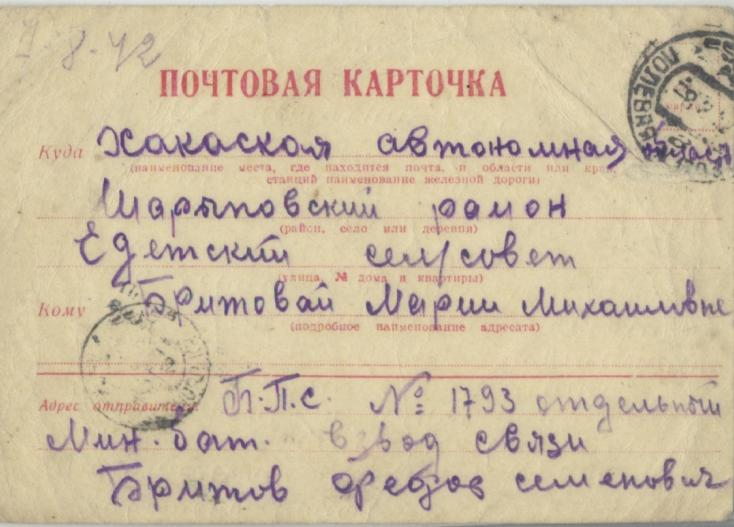 7-8-42
ПОЧТОВАЯ КАРТОЧКА
ПОЛЕВАЯ
Куда Хакаская автономная област
(наименование места, где находится почта, и области или края,
станций наименование железной дороги)
Шарыповский рамон
(район, село или деревня)
Едетский селсовет
(улица, № дома и квартиры)
Кому Бритовай Марии Михаиловне
(подробное наименование адресата)
Адрес отправителя: П.П.С. № 1793 отдельный
Мин. бат. взвод связи
Бритов Федор семенович